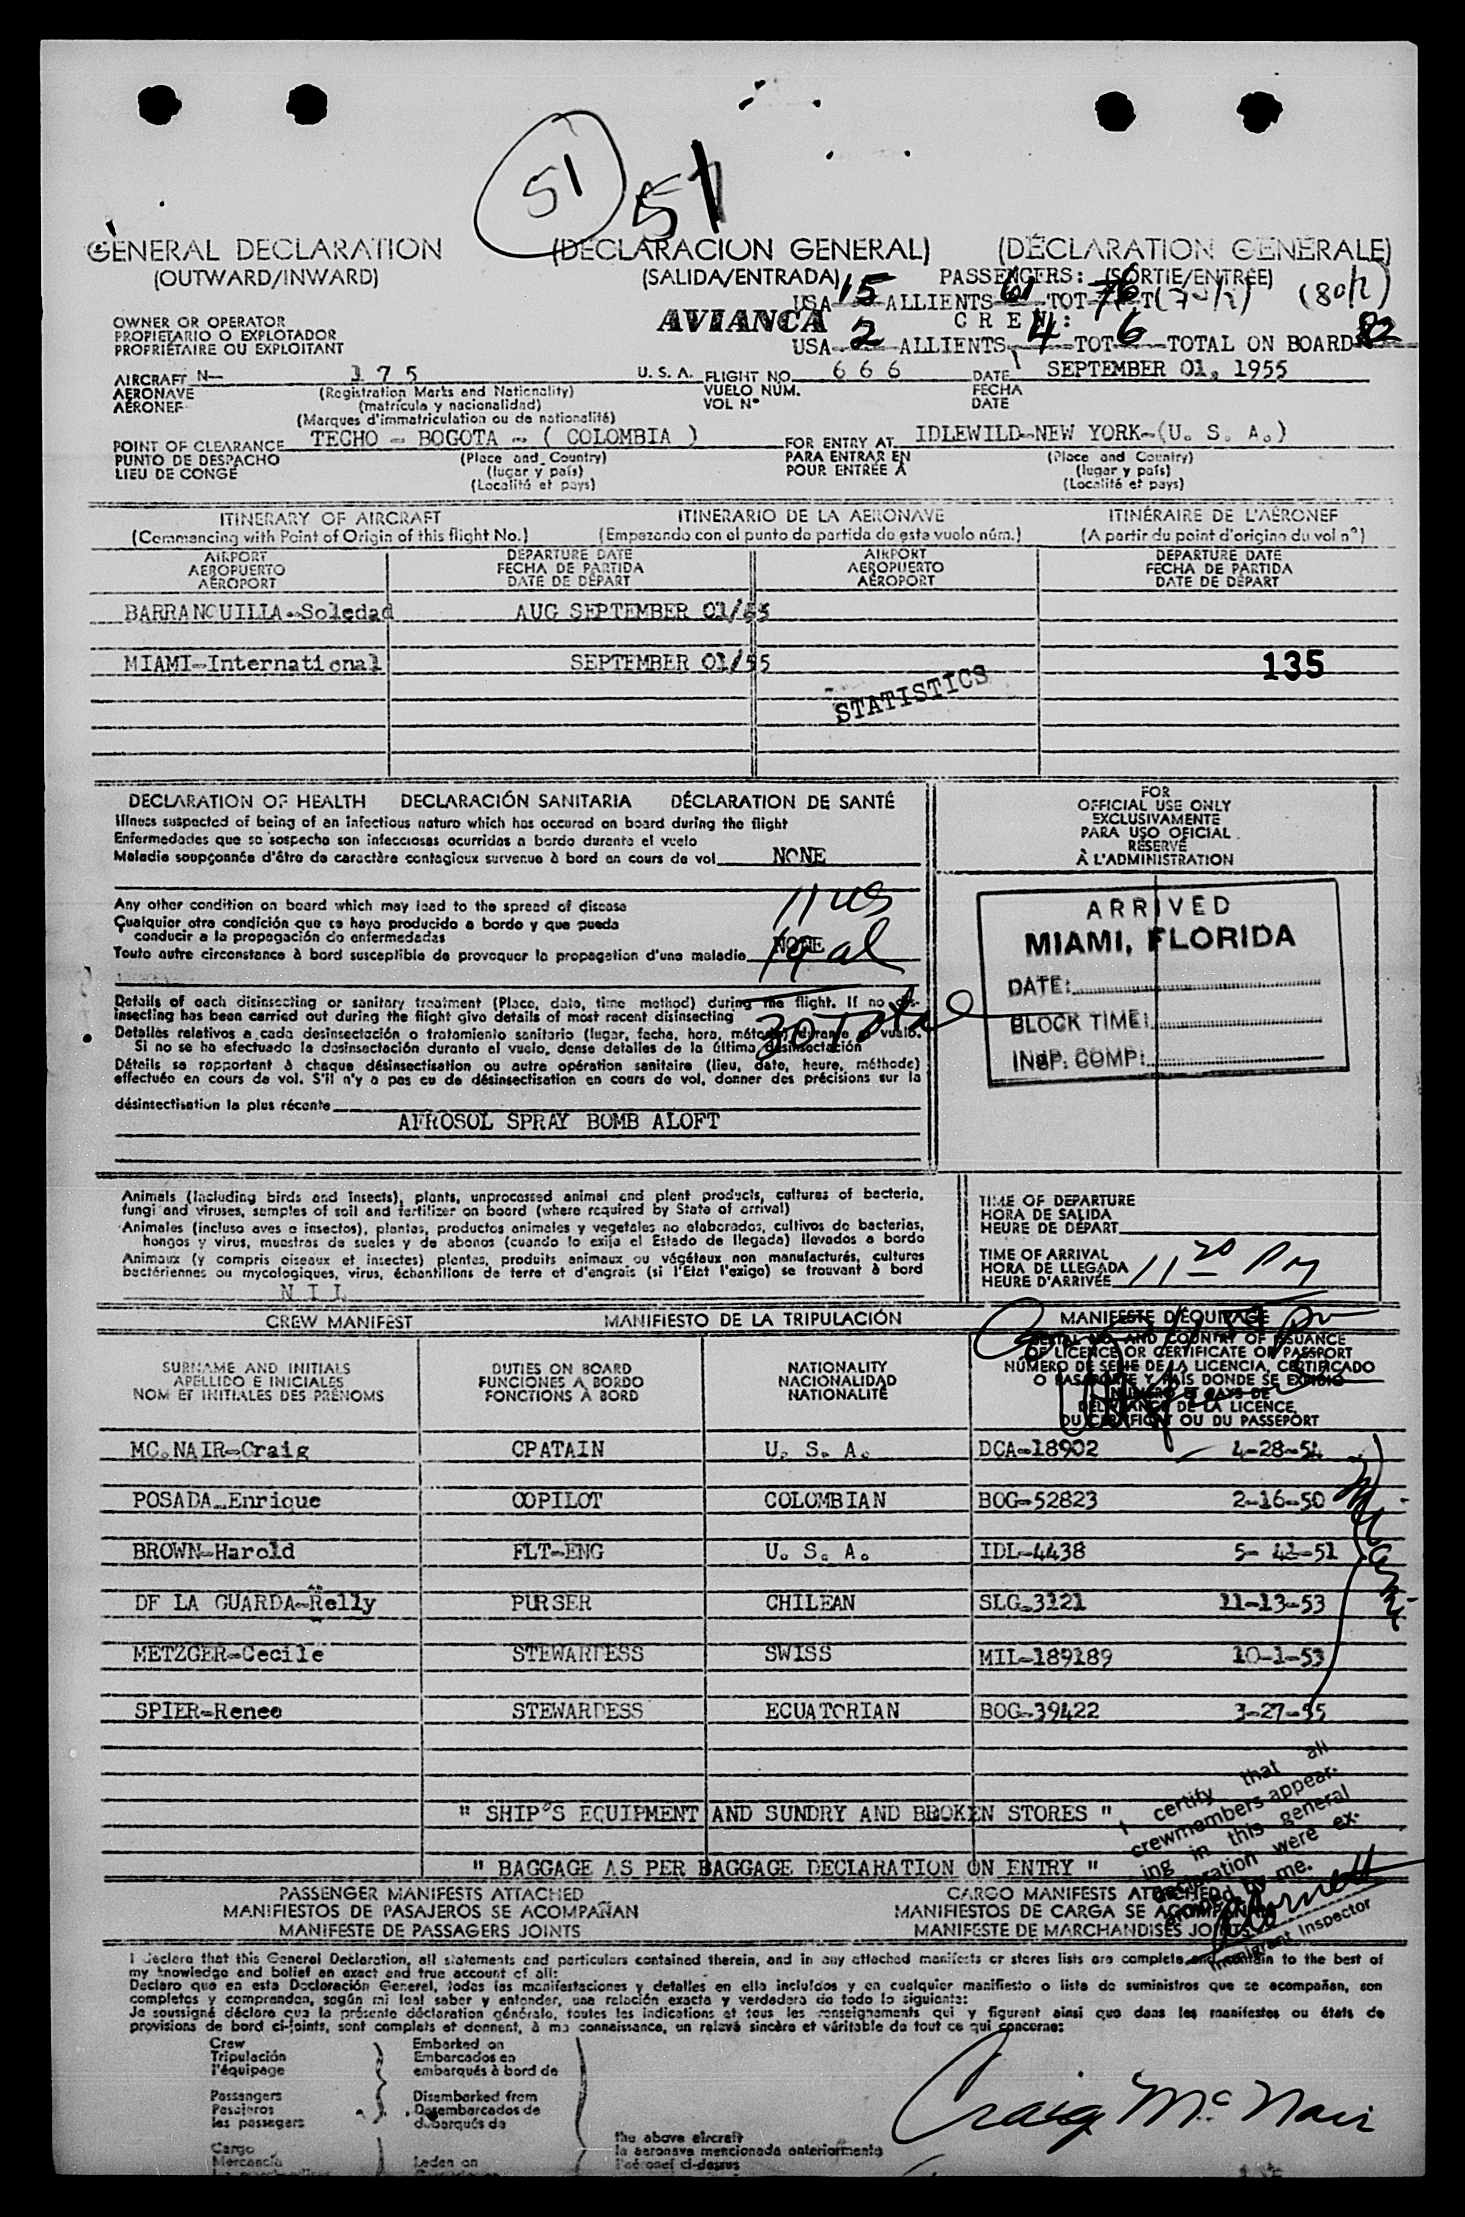 51 51
GENERAL DECLARATION (DECLARACION GENERAL) (DÉCLARATION GENERALE)
(OUTWARD/INWARD) (SALIDA/ENTRADA) PASSENGERS: (SORTIE/ENTRÉE)
USA 15 ALLIENTS 61 TOT 76 (80/2)
OWNER OR OPERATOR
PROPIETARIO O EXPLOTADOR AVIANCA CREW:
PROPRIÉTAIRE OU EXPLOITANT USA 2 ALLIENTS 4 TOT 6 TOTAL ON BOARD 82
AIRCRAFT N— 175 U. S. A. FLIGHT NO. 666 DATE SEPTEMBER 01, 1955
AERONAVE (Registration Marks and Nationality) VUELO NUM. FECHA
AÉRONEF (matrícula y nacionalidad) VOL N° DATE
(Marques d'immatriculation ou de nationalité)
POINT OF CLEARANCE TECHO - BOGOTA - ( COLOMBIA ) FOR ENTRY AT IDLEWILD-NEW YORK-(U. S. A.)
PUNTO DE DESPACHO (Place and Country) PARA ENTRAR EN (Place and Country)
LIEU DE CONGÉ (lugar y país) POUR ENTRÉE A (lugar y país)
(Localité et pays) (Localité et pays)
ITINERARY OF AIRCRAFT ITINERARIO DE LA AERONAVE ITINÉRAIRE DE L'AÉRONEF
(Commencing with Point of Origin of this flight No.) (Empezando con el punto de partida de este vuelo núm.) (A partir du point d'origine du vol n°)
AIRPORT DEPARTURE DATE AIRPORT DEPARTURE DATE
AEROPUERTO FECHA DE PARTIDA AEROPUERTO FECHA DE PARTIDA
AÉROPORT DATE DE DÉPART AÉROPORT DATE DE DÉPART
BARRANQUILLA-Soledad AUG SEPTEMBER 01/55
MIAMI-International SEPTEMBER 01/55 135
STATISTICS
DECLARATION OF HEALTH DECLARACIÓN SANITARIA DÉCLARATION DE SANTÉ
Illness suspected of being of an infectious nature which has occured on board during the flight
Enfermedades que se sospecha son infecciosas ocurridas a bordo durante el vuelo
Maladie soupçonnée d'être de caractère contagieux survenue à bord en cours de vol NONE
FOR
OFFICIAL USE ONLY
EXCLUSIVAMENTE
PARA USO OFICIAL
RESERVÉ
À L'ADMINISTRATION
11 us
Any other condition on board which may lead to the spread of disease
Cualquier otra condición que se haya producido a bordo y que pueda
conducir a la propagación de enfermedades
Toute autre circonstance à bord susceptible de provoquer la propagation d'une maladie NONE
19 al
30 Total
ARRIVED
MIAMI, FLORIDA
DATE:
BLOCK TIME:
INSP. COMP:
Details of each disinsecting or sanitary treatment (Place, date, time method) during the flight. If no dis-
insecting has been carried out during the flight give details of most recent disinsecting
Detalles relativos a cada desinsectación o tratamiento sanitario (lugar, fecha, hora, método) durante el vuelo.
Si no se ha efectuado la desinsectación durante el vuelo, dense detalles de la última desinsectación
Détails se rapportant à chaque désinsectisation ou autre opération sanitaire (lieu, date, heure, méthode)
effectuée en cours de vol. S'il n'y a pas eu de désinsectisation en cours de vol, donner des précisions sur la
désinsectisation la plus récente
AEROSOL SPRAY BOMB ALOFT
Animals (including birds and insects), plants, unprocessed animal and plant products, cultures of bacteria,
fungi and viruses, samples of soil and fertilizer on board (where required by State of arrival)
Animales (incluso aves e insectos), plantas, productos animales y vegetales no elaborados, cultivos de bacterias,
hongos y virus, muestras de suelos y de abonos (cuando lo exija el Estado de llegada) llevados a bordo
Animaux (y compris oiseaux et insectes) plantes, produits animaux ou végétaux non manufacturés, cultures
bactériennes ou mycologiques, virus, échantillons de terre et d'engrais (si l'Etat l'exige) se trouvant à bord
NIL
TIME OF DEPARTURE
HORA DE SALIDA
HEURE DE DÉPART
TIME OF ARRIVAL
HORA DE LLEGADA
HEURE D'ARRIVÉE 11 20 PM
CREW MANIFEST MANIFIESTO DE LA TRIPULACIÓN MANIFESTE D'ÉQUIPAGE
SURNAME AND INITIALS DUTIES ON BOARD NATIONALITY
APELLIDO E INICIALES FUNCIONES A BORDO NACIONALIDAD
NOM ET INITIALES DES PRÉNOMS FONCTIONS À BORD NATIONALITÉ
SERIAL NO. AND COUNTRY OF ISSUANCE
OF LICENCE OR CERTIFICATE OR PASSPORT
NÚMERO DE SERIE DE LA LICENCIA, CERTIFICADO
O PASAPORTE Y PAÍS DONDE SE EXPIDIÓ
NUMÉRO ET PAYS DE
DÉLIVRANCE DE LA LICENCE,
DU CERTIFICAT OU DU PASSEPORT
MC.NAIR-Craig CPATAIN U. S. A. DCA-18902 4-28-54
POSADA-Enrique COPILOT COLOMBIAN BOG-52823 2-16-50
BROWN-Harold FLT-ENG U. S. A. IDL-4438 51
DE LA GUARDA-Relly PURSER CHILEAN SLG-3121 11-13-53
METZGER-Cecile STEWARDESS SWISS MIL-189189 10-1-53
SPIER-Renee STEWARDESS ECUATORIAN BOG-39422 3-27-55
Miami
" SHIP'S EQUIPMENT AND SUNDRY AND BROKEN STORES "
" BAGGAGE AS PER BAGGAGE DECLARATION ON ENTRY "
I certify that all
crewmembers appear-
ing in this general
declaration were ex-
amined by me.
Immigrant Inspector
PASSENGER MANIFESTS ATTACHED CARGO MANIFESTS ATTACHED
MANIFIESTOS DE PASAJEROS SE ACOMPAÑAN MANIFIESTOS DE CARGA SE ACOMPAÑAN
MANIFESTE DE PASSAGERS JOINTS MANIFESTE DE MARCHANDISES JOINTS
I declare that this General Declaration, all statements and particulars contained therein, and in any attached manifests or stores lists are complete and contain to the best of
my knowledge and belief an exact and true account of all:
Declaro que en esta Declaración General, todas las manifestaciones y detalles en ella incluídos y en cualquier manifiesto o lista de suministros que se acompañan, son
completos y comprenden, según mi leal saber y entender, una relación exacta y verdadera de todo lo siguiente:
Je soussigné déclare que la présente déclaration générale, toutes les indications et tous les renseignements qui y figurent ainsi que dans les manifestes ou états de
provisions de bord ci-joints, sont complets et donnent, à ma connaissance, un relevé sincère et véritable de tout ce qui concerne:
Crew Embarked on
Tripulación Embarcados en
l'équipage embarqués à bord de
Passengers Disembarked from
Pasajeros Desembarcados de
les passagers débarqués de
Craig McNair
the above aircraft
Cargo la aeronave mencionada anteriormente
Mercancía Laden on l'aéronef ci-dessus